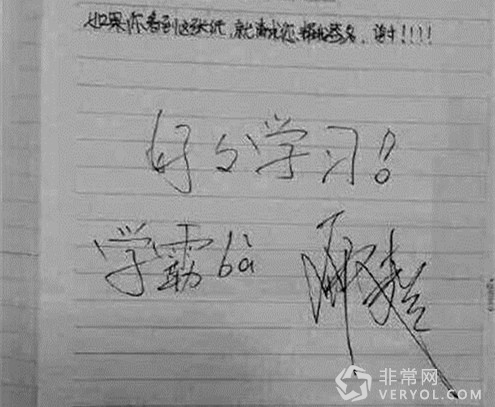 如果你看到这张纸,就请你 帮我签名,谢谢!!!!
好好学习!
学霸 bà
非常网
VERYOL.COM